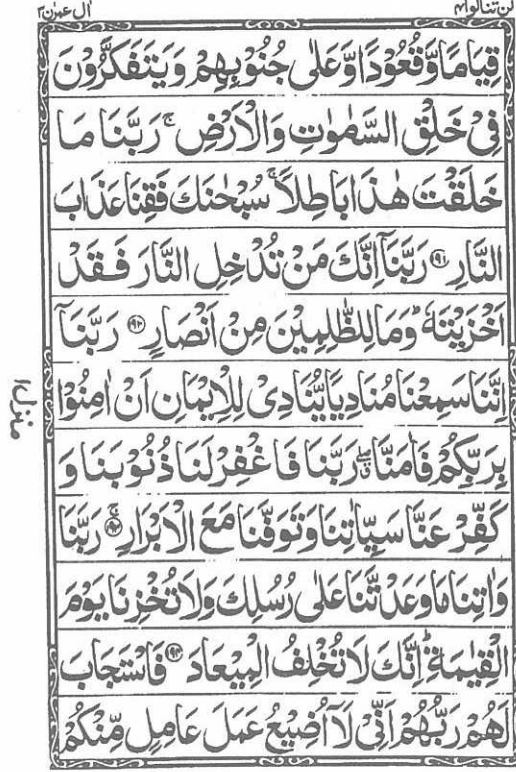 لن تنالوا ٤
ال عمرٰن ٣
قِيَامًا وَّقُعُوْدًا وَّعَلٰى جُنُوْبِهِمْ وَيَتَفَكَّرُوْنَ
فِيْ خَلْقِ السَّمٰوٰتِ وَالْاَرْضِ ۚ رَبَّنَا مَا
خَلَقْتَ هٰذَا بَاطِلًا ۚ سُبْحٰنَكَ فَقِنَا عَذَابَ
النَّارِ ۝۱۹۱ رَبَّنَآ اِنَّكَ مَنْ تُدْخِلِ النَّارَ فَقَدْ
اَخْزَيْتَهٗ ؕ وَمَا لِلظّٰلِمِيْنَ مِنْ اَنْصَارٍ ۝۱۹۲ رَبَّنَآ
اِنَّنَا سَمِعْنَا مُنَادِيًا يُّنَادِيْ لِلْاِيْمَانِ اَنْ اٰمِنُوْا
بِرَبِّكُمْ فَاٰمَنَّا ۖ رَبَّنَا فَاغْفِرْ لَنَا ذُنُوْبَنَا وَ
كَفِّرْ عَنَّا سَيِّاٰتِنَا وَتَوَفَّنَا مَعَ الْاَبْرَارِ ۝۱۹۳ رَبَّنَا
وَاٰتِنَا مَا وَعَدْتَّنَا عَلٰى رُسُلِكَ وَلَا تُخْزِنَا يَوْمَ
الْقِيٰمَةِ ؕ اِنَّكَ لَا تُخْلِفُ الْمِيْعَادَ ۝۱۹۴ فَاسْتَجَابَ
لَهُمْ رَبُّهُمْ اَنِّيْ لَآ اُضِيْعُ عَمَلَ عَامِلٍ مِّنْكُمْ
منزل ۱